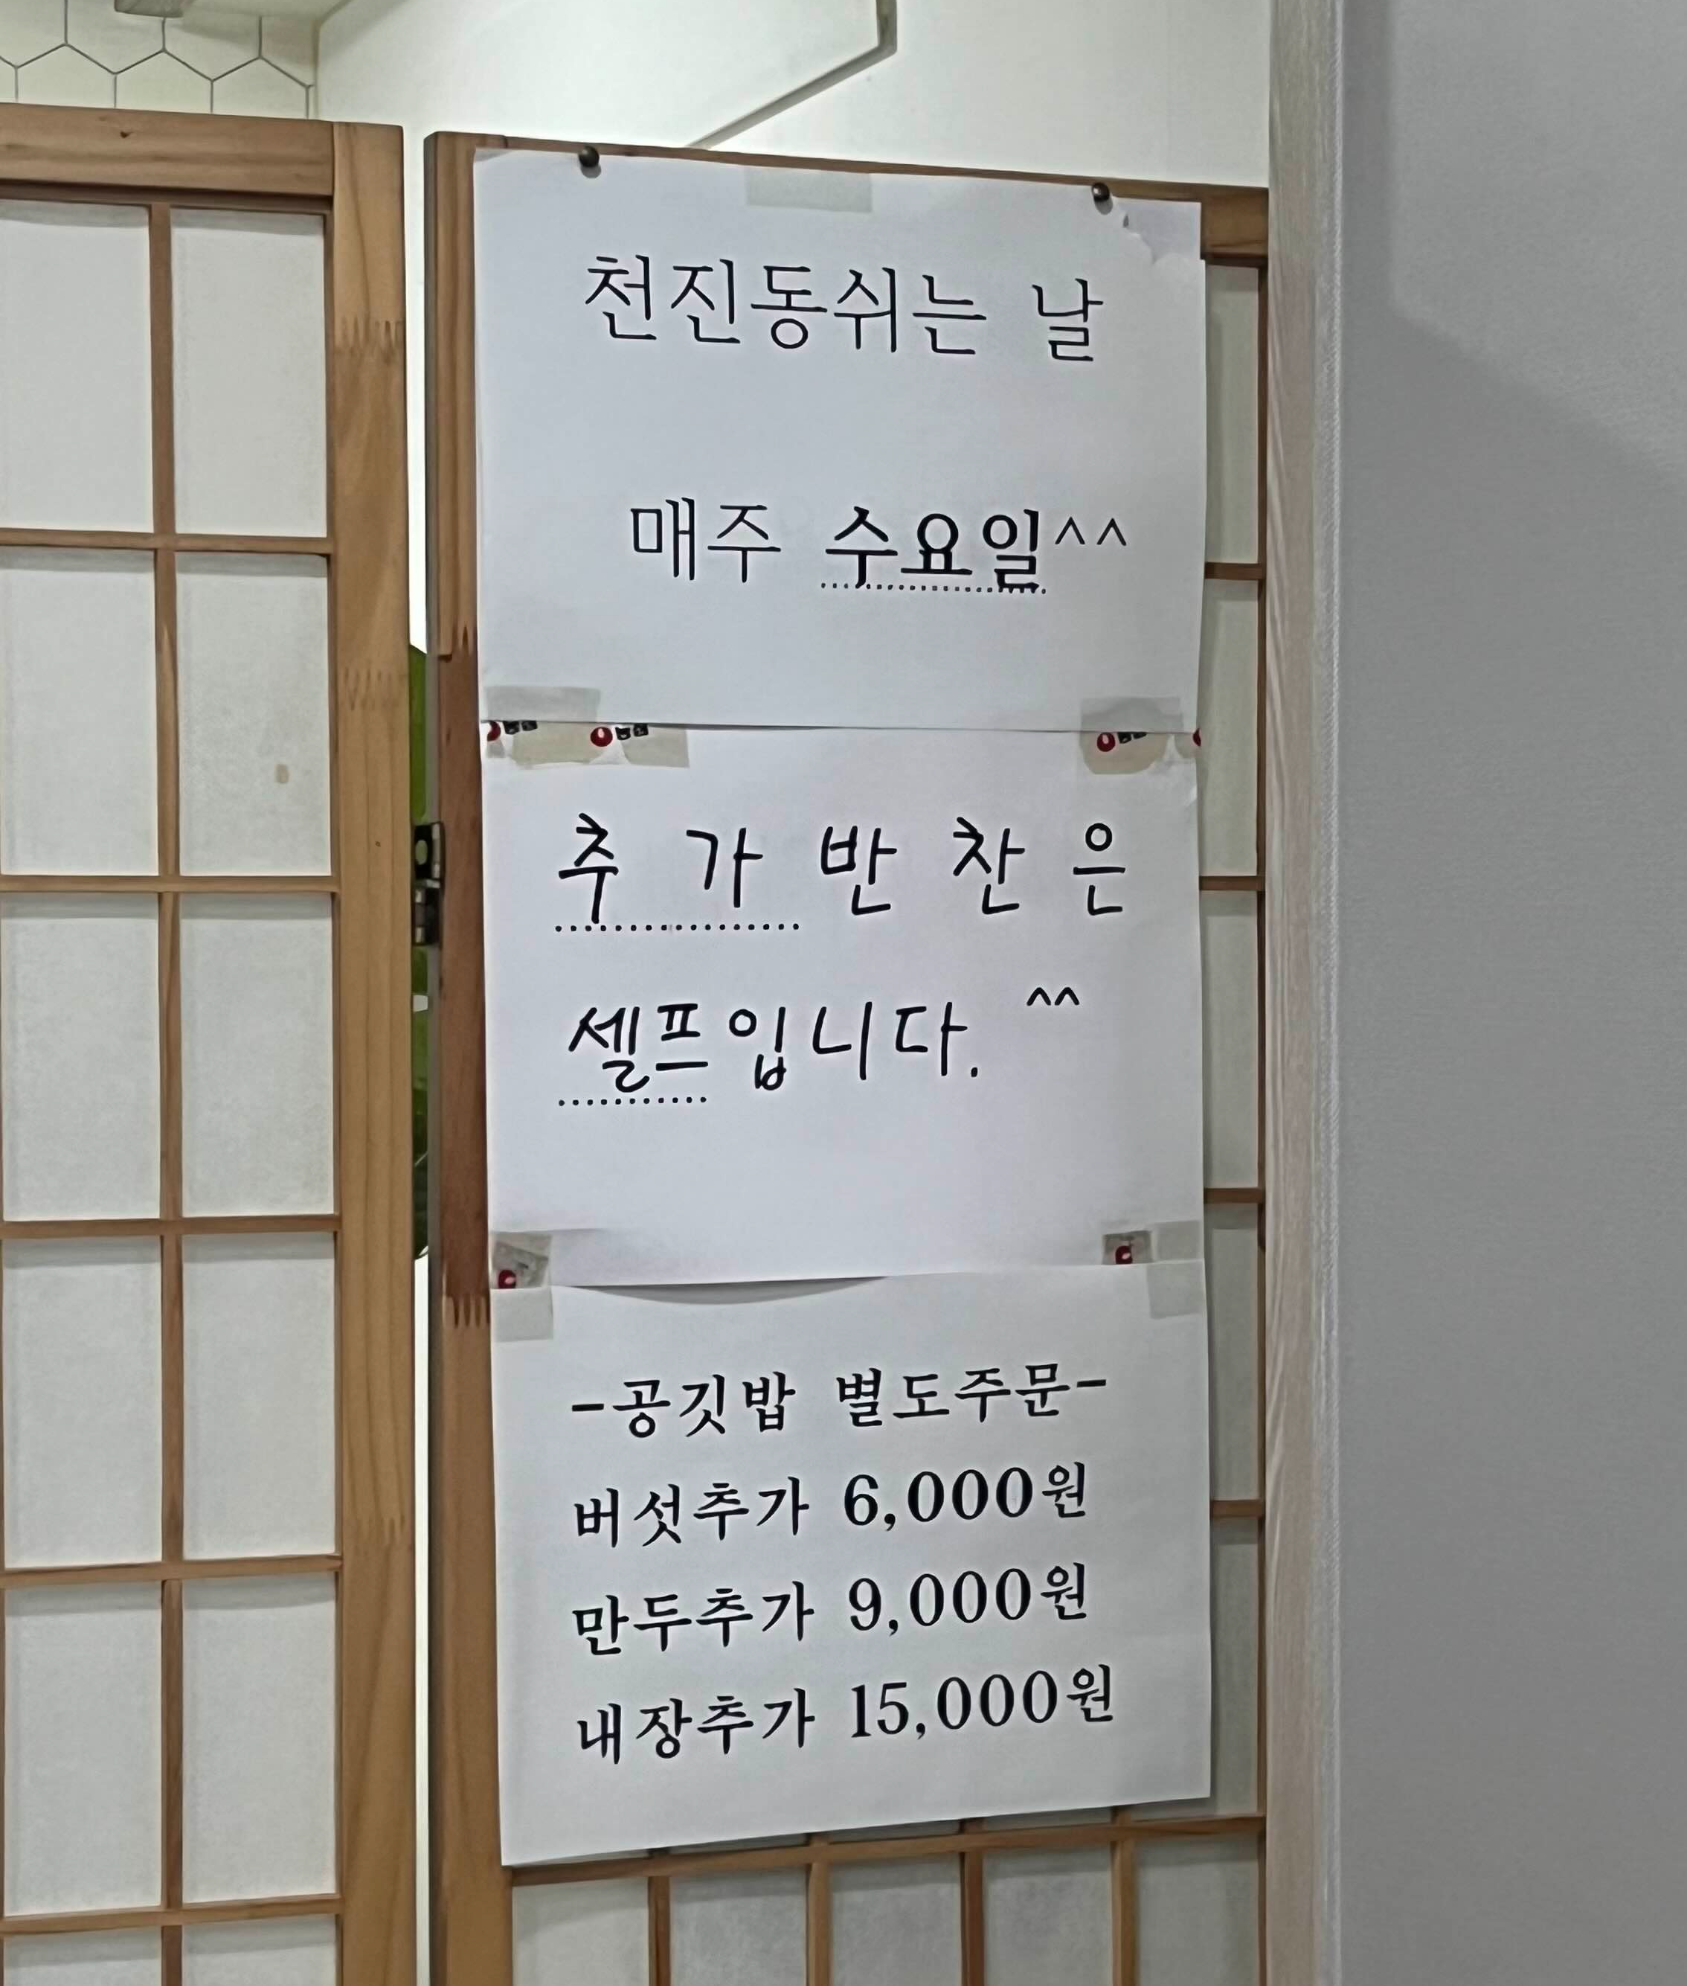 천진동쉬는 날
매주 수요일^^
추가반찬은
셀프입니다. ^^
-공깃밥 별도주문-
버섯추가 6,000원
만두추가 9,000원
내장추가 15,000원